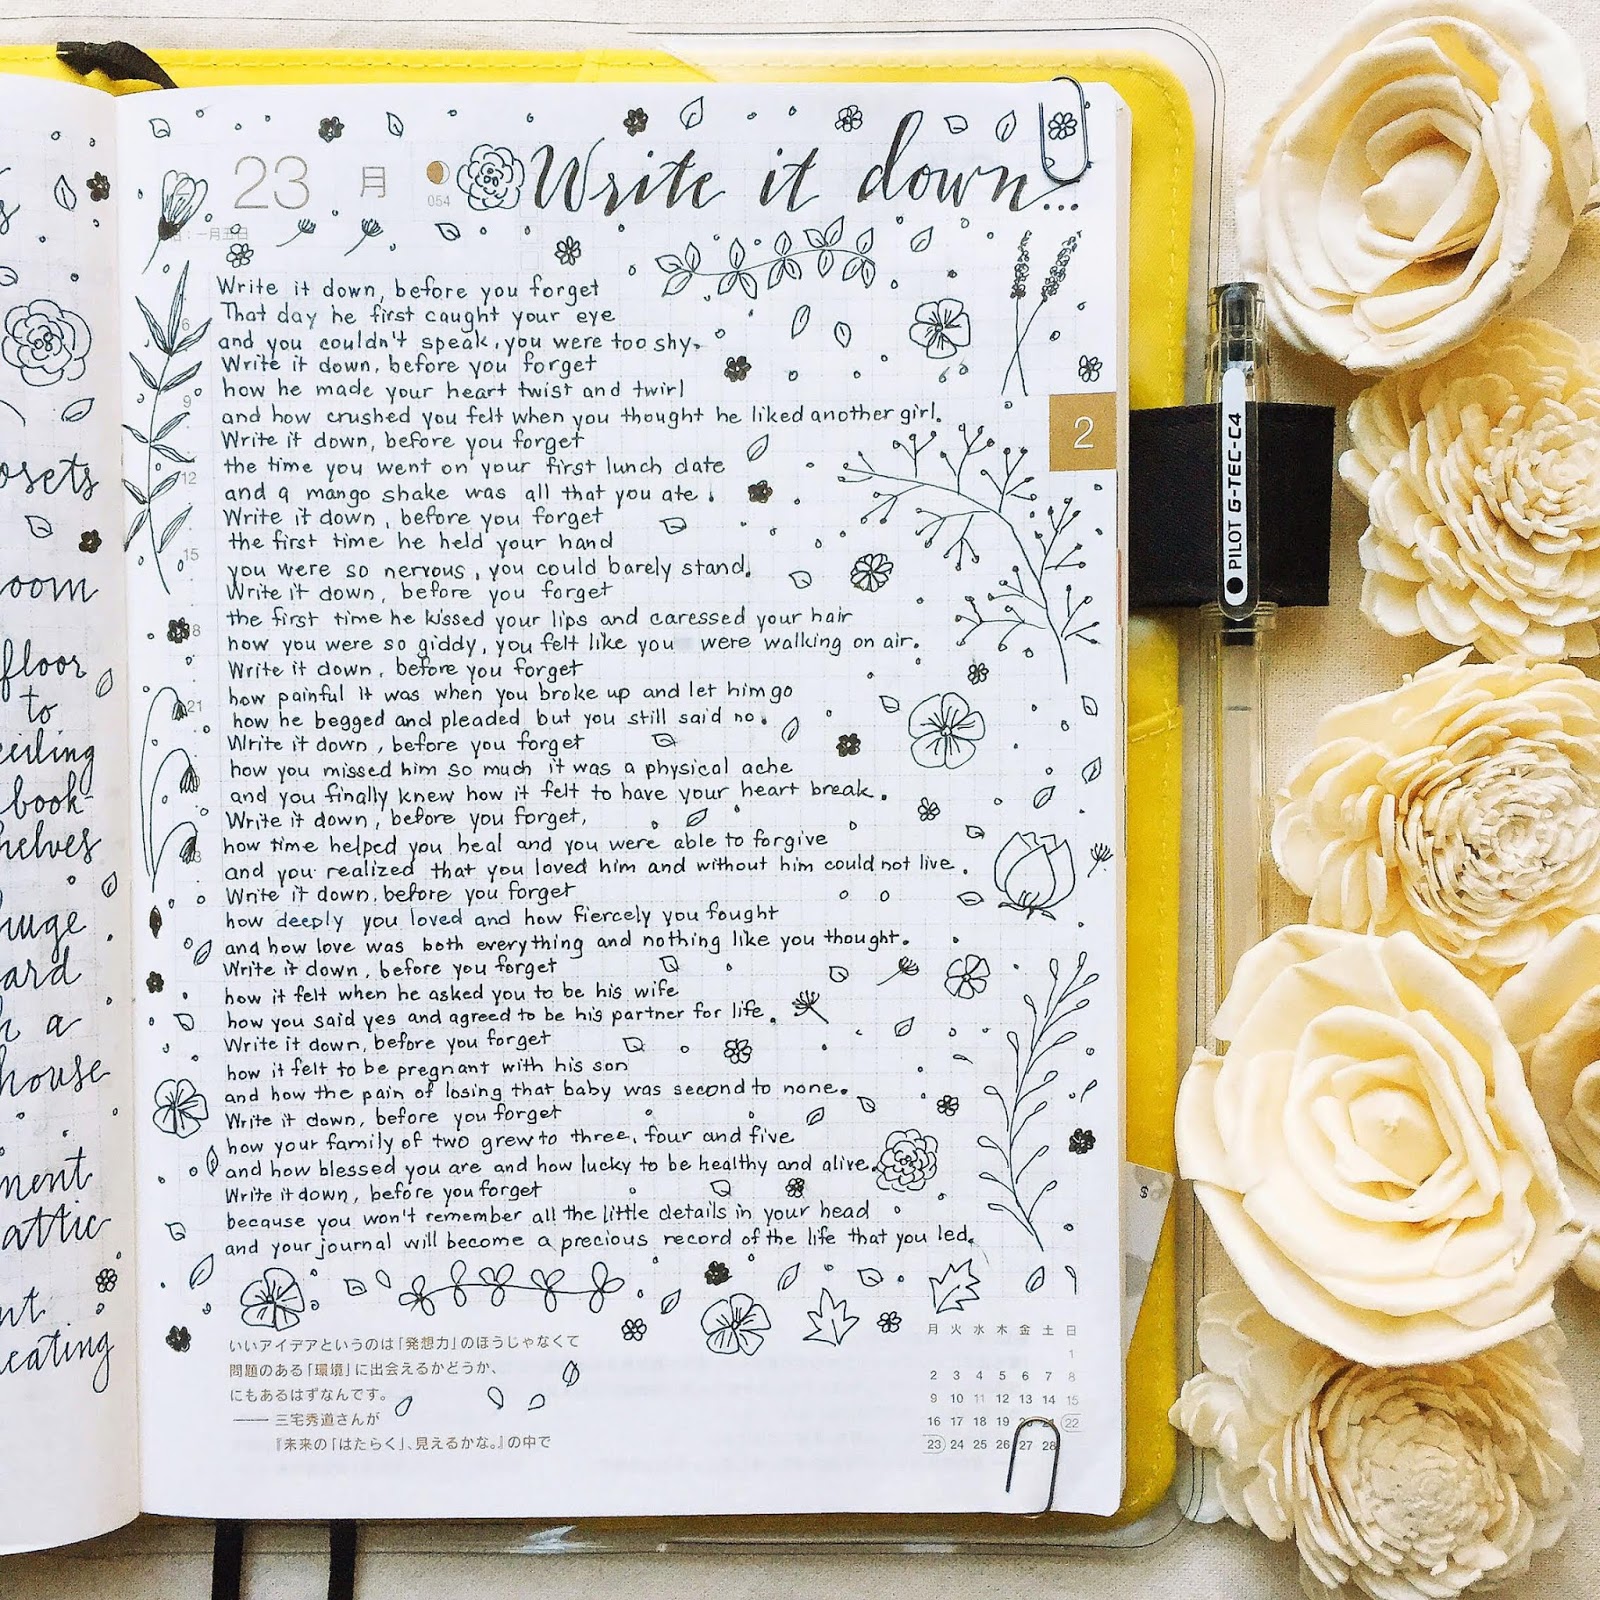 23
月
054
Write it down...
Write it down, before you forget
That day he first caught your eye
and you couldn't speak, you were too shy.
Write it down, before you forget
how he made your heart twist and twirl
and how crushed you felt when you thought he liked another girl.
Write it down, before you forget
the time you went on your first lunch date
and a mango shake was all that you ate.
Write it down, before you forget
the first time he held your hand
you were so nervous, you could barely stand.
Write it down, before you forget
the first time he kissed your lips and caressed your hair
how you were so giddy, you felt like you were walking on air.
Write it down, before you forget
how painful it was when you broke up and let him go
how he begged and pleaded but you still said no.
Write it down, before you forget
how you missed him so much it was a physical ache
and you finally knew how it felt to have your heart break.
Write it down, before you forget,
how time helped you heal and you were able to forgive
and you realized that you loved him and without him could not live.
Write it down, before you forget
how deeply you loved and how fiercely you fought
and how love was both everything and nothing like you thought.
Write it down, before you forget
how it felt when he asked you to be his wife
how you said yes and agreed to be his partner for life.
Write it down, before you forget
how it felt to be pregnant with his son
and how the pain of losing that baby was second to none.
Write it down, before you forget
how your family of two grew to three, four and five
and how blessed you are and how lucky to be healthy and alive.
Write it down, before you forget
because you won't remember all the little details in your head
and your journal will become a precious record of the life that you led.
いいアイデアというのは「発想力」のほうじゃなくて
問題のある「環境」に出会えるかどうか、
にもあるはずなんです。
――三宅秀道さんが
『未来の「はたらく」、見えるかな。』の中で
月 火 水 木 金 土 日
1
2 3 4 5 6 7 8
9 10 11 12 13 14 15
16 17 18 19 20 21 22
23 24 25 26 27 28
6
9
12
15
18
21
2
PILOT G-TEC-C4
$
floor
to
book-
huge
a
house
attic